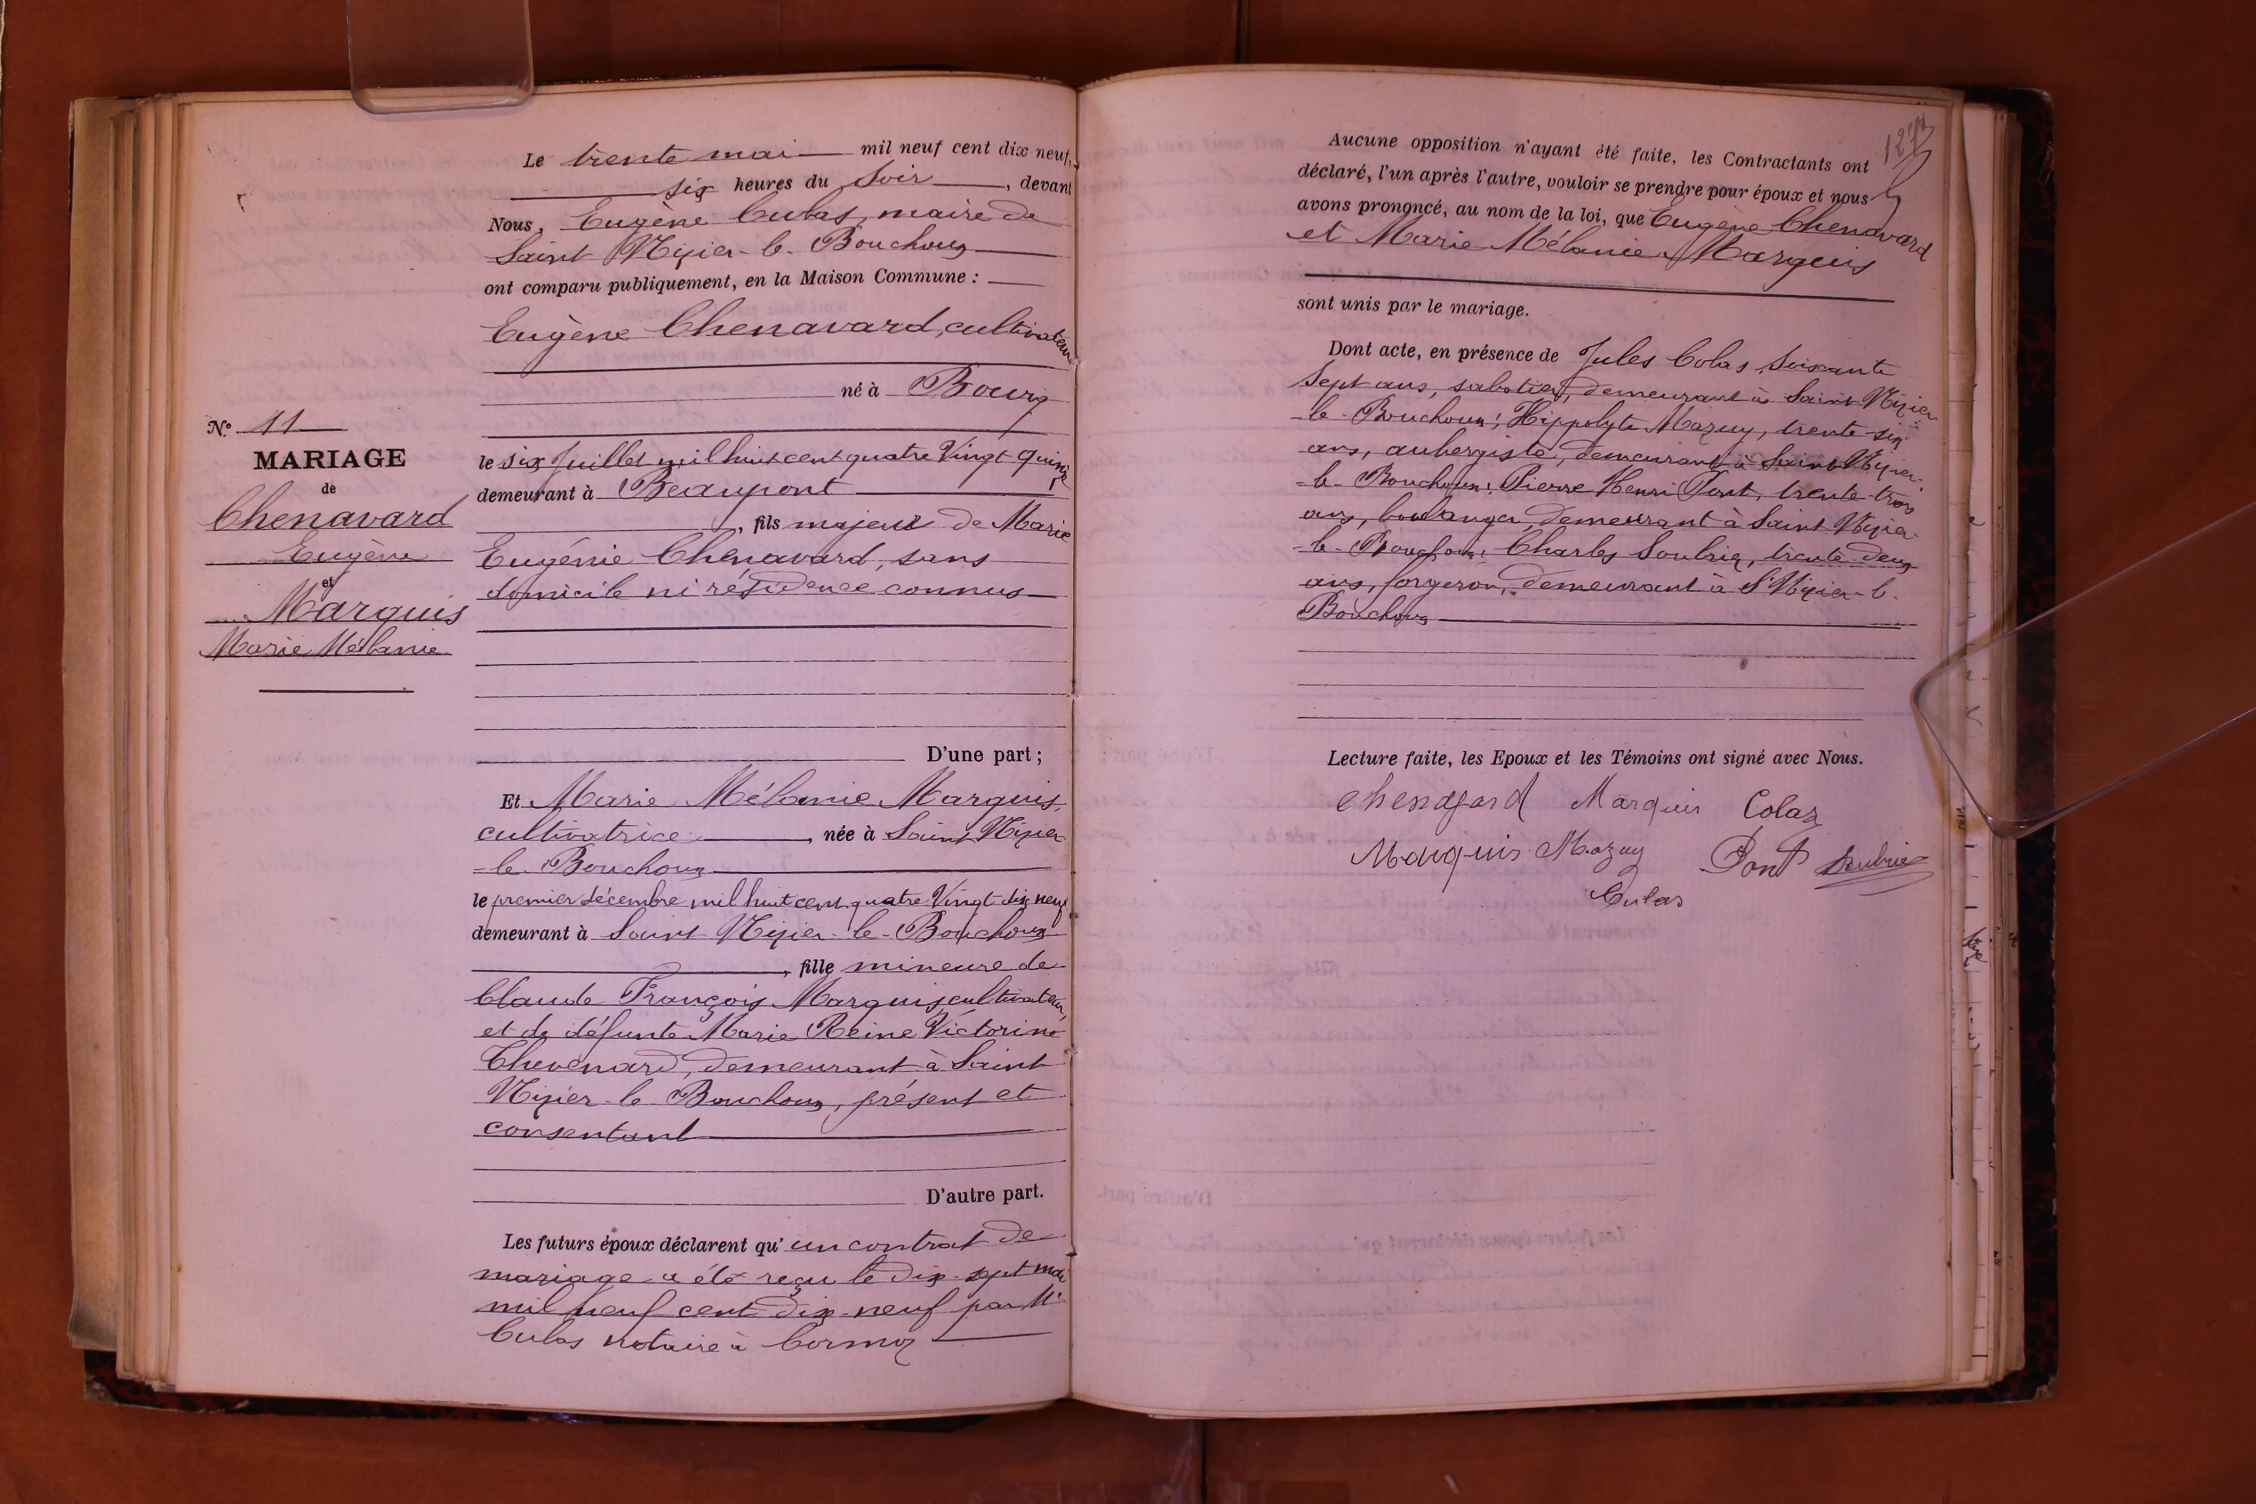 N.° 11
MARIAGE
de
Chenavard
Eugène
et
Marquis
Marie Mélanie
Le trente mai mil neuf cent dix neuf,
six heures du Soir, devant
Nous, Eugène Culas, maire de
Saint Nizier-le-Bouchoux
ont comparu publiquement, en la Maison Commune :
Eugène Chenavard, cultivateur
né à Bourg
le six Juillet mil huit cent quatre Vingt quinze
demeurant à Beaupont
, fils majeur de Marie
Eugénie Chenavard, sans
domicile ni résidence connus
D'une part ;
Et Marie Mélanie Marquis,
cultivatrice, née à Saint Nizier
-le-Bouchoux
le premier décembre mil huit cent quatre Vingt dix neuf
demeurant à Saint Nizier-le-Bouchoux
, fille mineure de
Claude François Marquis, cultivateur,
et de défunte Marie Reine Victorine
Thevenard, demeurant à Saint
Nizier-le Bouchoux, présent et
consentant
D'autre part.
Les futurs époux déclarent qu'un contrat de
mariage a été reçu le dix-sept mai
mil neuf cent dix-neuf par Me
Culas notaire à Cormoz
127
Aucune opposition n'ayant été faite, les Contractants ont
déclaré, l'un après l'autre, vouloir se prendre pour époux et nous
avons prononcé, au nom de la loi, que Eugène Chenavard
et Marie Mélanie Marquis
sont unis par le mariage.
Dont acte, en présence de Jules Colas, soixante
sept ans, sabotier, demeurant à Saint Nizier
-le-Bouchoux ; Hippolyte Mazuy, trente-six
ans, aubergiste, demeurant à Saint Nizier-
-le-Bouchoux ; Pierre Henri Pont, trente-trois
ans, boulanger, demeurant à Saint Nizier-
-le-Bouchoux ; Charles Soubrier, trente deux
ans, forgeron, demeurant à St Nizier-le-
Bouchoux
Lecture faite, les Epoux et les Témoins ont signé avec Nous.
Chenavard Marquis Colas
Marquis Mazuy Pont Soubrier
Culas